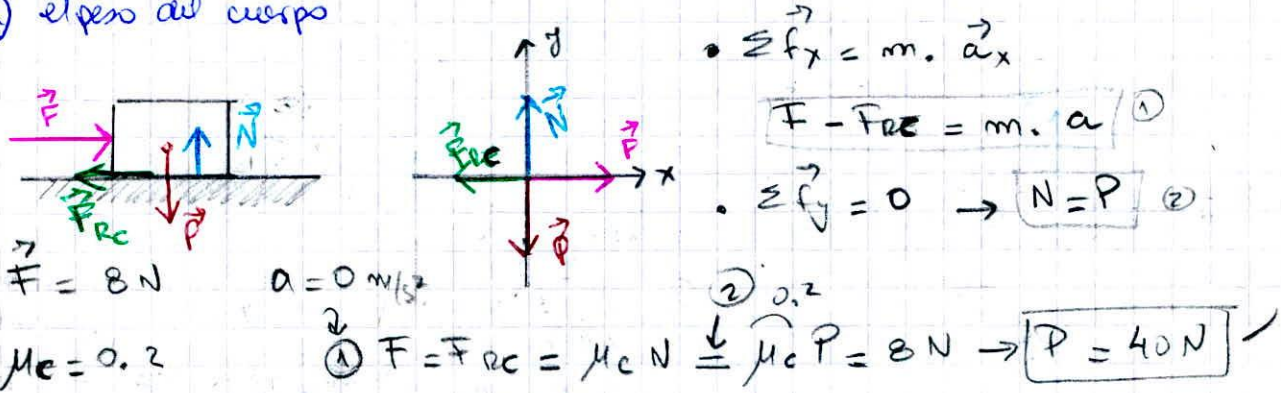 ) el peso del cuerpo
F⃗ N⃗ F⃗RC P⃗
y N⃗ F⃗RC F⃗ x P⃗
• Σf⃗x = m. a⃗x
F - FRC = m. a ①
• Σf⃗y = 0 → N = P ②
F⃗ = 8 N a = 0 m/s²
② 0.2
μc = 0.2 ① F = FRC = μc N = μc P = 8 N → P = 40 N